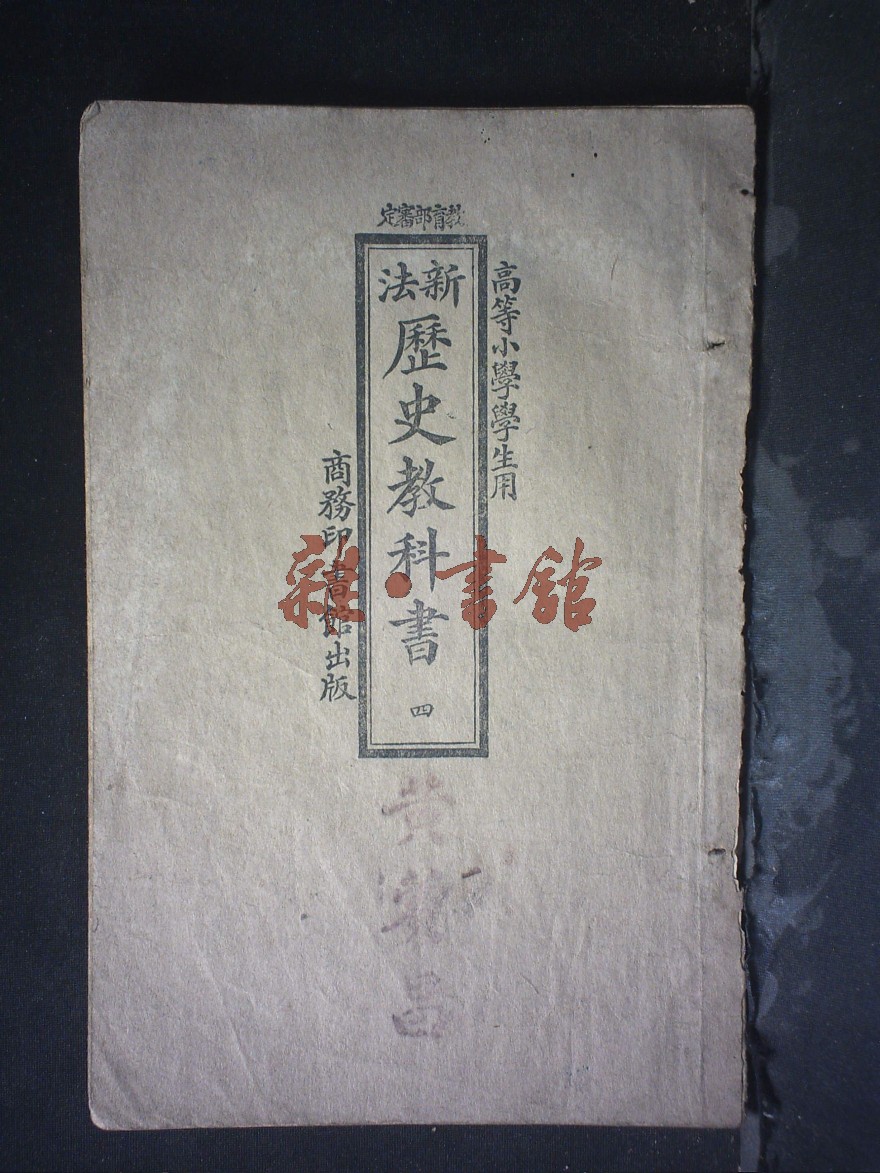 教育部審定
高等小學學生用
新法
歷史教科書
四
商務印書館出版
雜·書館
黃
昌